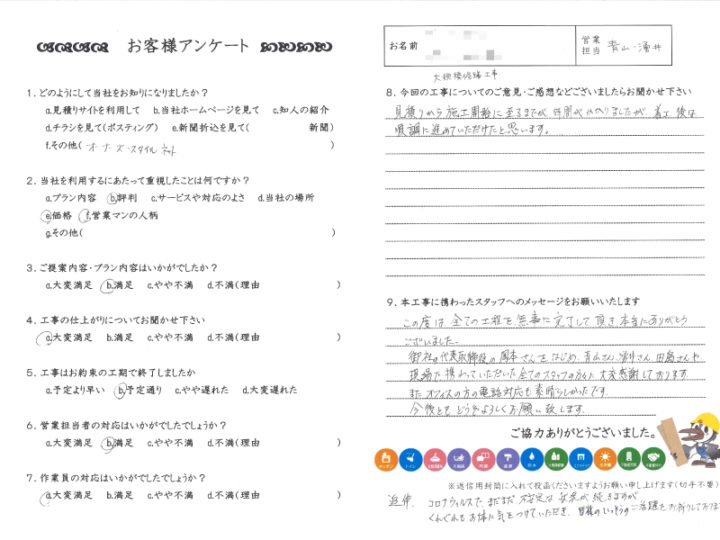 お客様アンケート
1. どのようにして当社をお知りになりましたか?
a.見積りサイトを利用して b.当社ホームページを見て c.知人の紹介
d.チラシを見て(ポスティング) e.新聞折込を見て( 新聞)
f.その他( オーナーズ・スタイルネット )
2. 当社を利用するにあたって重視したことは何ですか?
a.プラン内容 b.評判 c.サービスや対応のよさ d.当社の場所
e.価格 f.営業マンの人柄
g.その他( )
3. ご提案内容・プラン内容はいかがでしたか?
a.大変満足 b.満足 c.やや不満 d.不満(理由 )
4. 工事の仕上がりについてお聞かせ下さい
a.大変満足 b.満足 c.やや不満 d.不満(理由 )
5. 工事はお約束の工期で終了しましたか
a.予定より早い b.予定通り c.やや遅れた d.大変遅れた
6. 営業担当者の対応はいかがでしたでしょうか?
a.大変満足 b.満足 c.やや不満 d.不満(理由 )
7. 作業員の対応はいかがでしたでしょうか?
a.大変満足 b.満足 c.やや不満 d.不満(理由 )
お名前
営業担当 青山・涌井
大規模修繕工事
8. 今回の工事についてのご意見・ご感想などございましたらお聞かせ下さい
見積りから施工開始に至るまでが時間がかかりましたが、着工後は
順調に進めていただけたと思います。
9. 本工事に携わったスタッフへのメッセージをお願いいたします
この度は全ての工程を無事に完了して頂き本当にありがとう
ございました。
御社の代表取締役の岡本さんをはじめ、青山さん、 さん、田島さんや
現場で携わっていただいた全てのスタッフの方々に大変感謝しております。
またオフィスの方の電話対応も素晴らしかったです。
今後ともどうぞよろしくお願い致します。
ご協力ありがとうございました。
※返信用封筒に入れて投函くださいますようお願い申し上げます(切手不要)
追伸. コロナウィルスで、まだまだ不安定な 続きますが
くれぐれもお体に気をつけていただき、皆様のいっそうのご活躍をお祈りしております